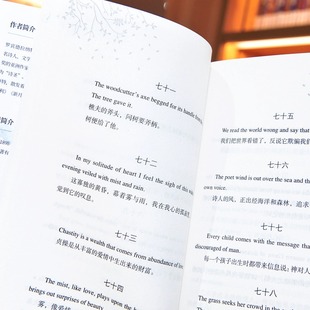 作者简介
七十一
The woodcutter's axe begged for its handle from
The tree gave it.
樵夫的斧头，问树要斧柄。
树便给了他。
七十二
In my solitude of heart I feel the sigh of this
evening veiled with mist and rain.
这寡独的黄昏，幕着雾与雨，我在我心的孤寂
觉到它的叹息。
七十三
Chastity is a wealth that comes from abundance of
贞操是从丰富的爱情中生出来的财富。
七十四
The mist, like love, plays upon the
brings out surprises of beauty.
雾，像爱情
七十五
We read the world wrong and say that
我们把世界看错了，反说它欺骗我们
七十六
The poet wind is out over the sea and the
own voice.
诗人的风，正出经海洋和森林，追求
七十七
Every child comes with the message that
discouraged of man.
每一个孩子出生时都带来信息说：神对人
七十八
The grass seeks her crowd in the